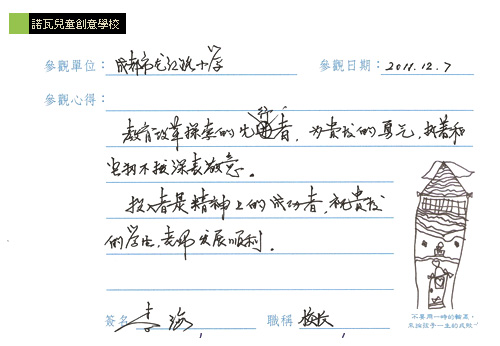 諾瓦兒童創意學校
參觀單位：成都市龙江路小学 參觀日期：2011.12.7
參觀心得：
教育改革探索的先行者，为贵校的勇气，执着和
坚韧不拔深表敬意。
投入者是精神上的成功者，祝贵校
的学生，老师发展顺利。
簽名 李海 職稱 校长
不要用一時的輸贏，